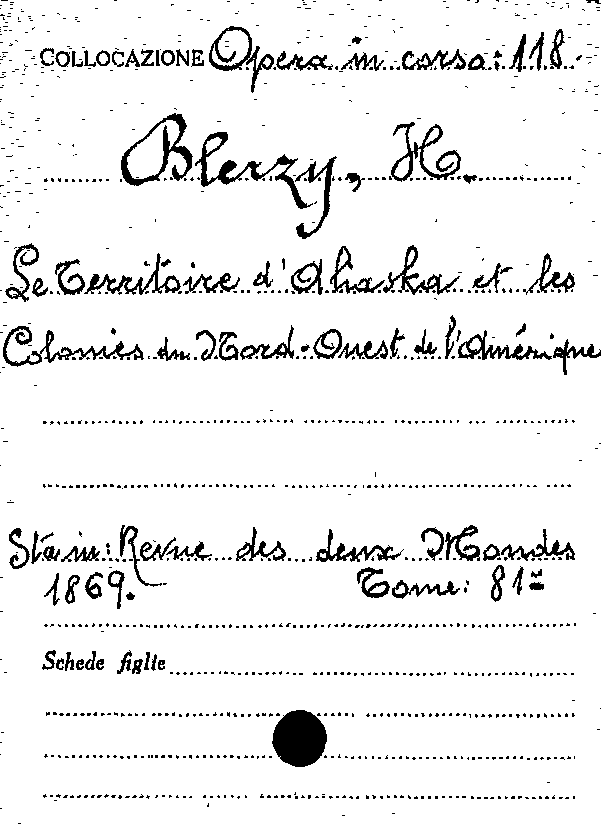 COLLOCAZIONE Opera in corso: 118.
Blerzy, H.
Le Territoire d'Aliaska et les
Colonies du Nord-Ouest de l'Amérique
Sta in: Revue des deux Mondes
1869. Tome: 81me
Schede figlie